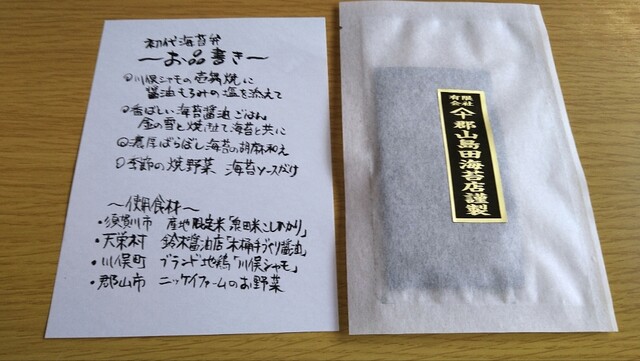 初代海苔弁
〜お品書き〜
◎川俣シャモの壺鍋焼に
醤油もろみの塩を添えて
◎香ばしい海苔醤油ごはん
金の雪と焼立て海苔と共に
◎濃厚ばらぼし海苔の胡麻和え
◎季節の焼野菜 海苔ソースがけ
〜使用食材〜
・須賀川市 産地限定米「浜田米こしひかり」
・天栄村 鈴木醤油店「木桶手づくり醤油」
・川俣町 ブランド地鶏「川俣シャモ」
・郡山市 ニッケイファームのお野菜
有限会社
郡山島田海苔店謹製